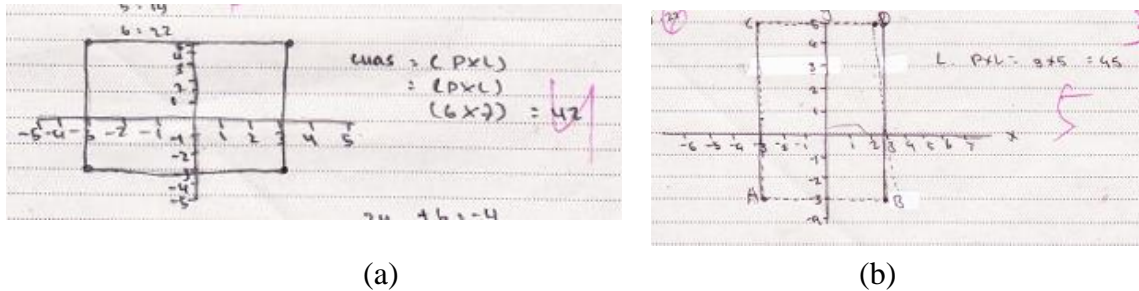 6 = 22
5
4
3
2
1
-5 -4 -3 -2 -1 1 2 3 4 5
-1
-2
-3
-4
-5
Luas = (PXL)
= (PXL)
(6X7) = 42
4
C
5
4
3
2
1
-6 -5 -4 -3 -2 -1 1 2 3 4 5 6 7 X
-1
-2
A -3 B
-4
L. PXL = 9X5 = 45
5
(a) (b)